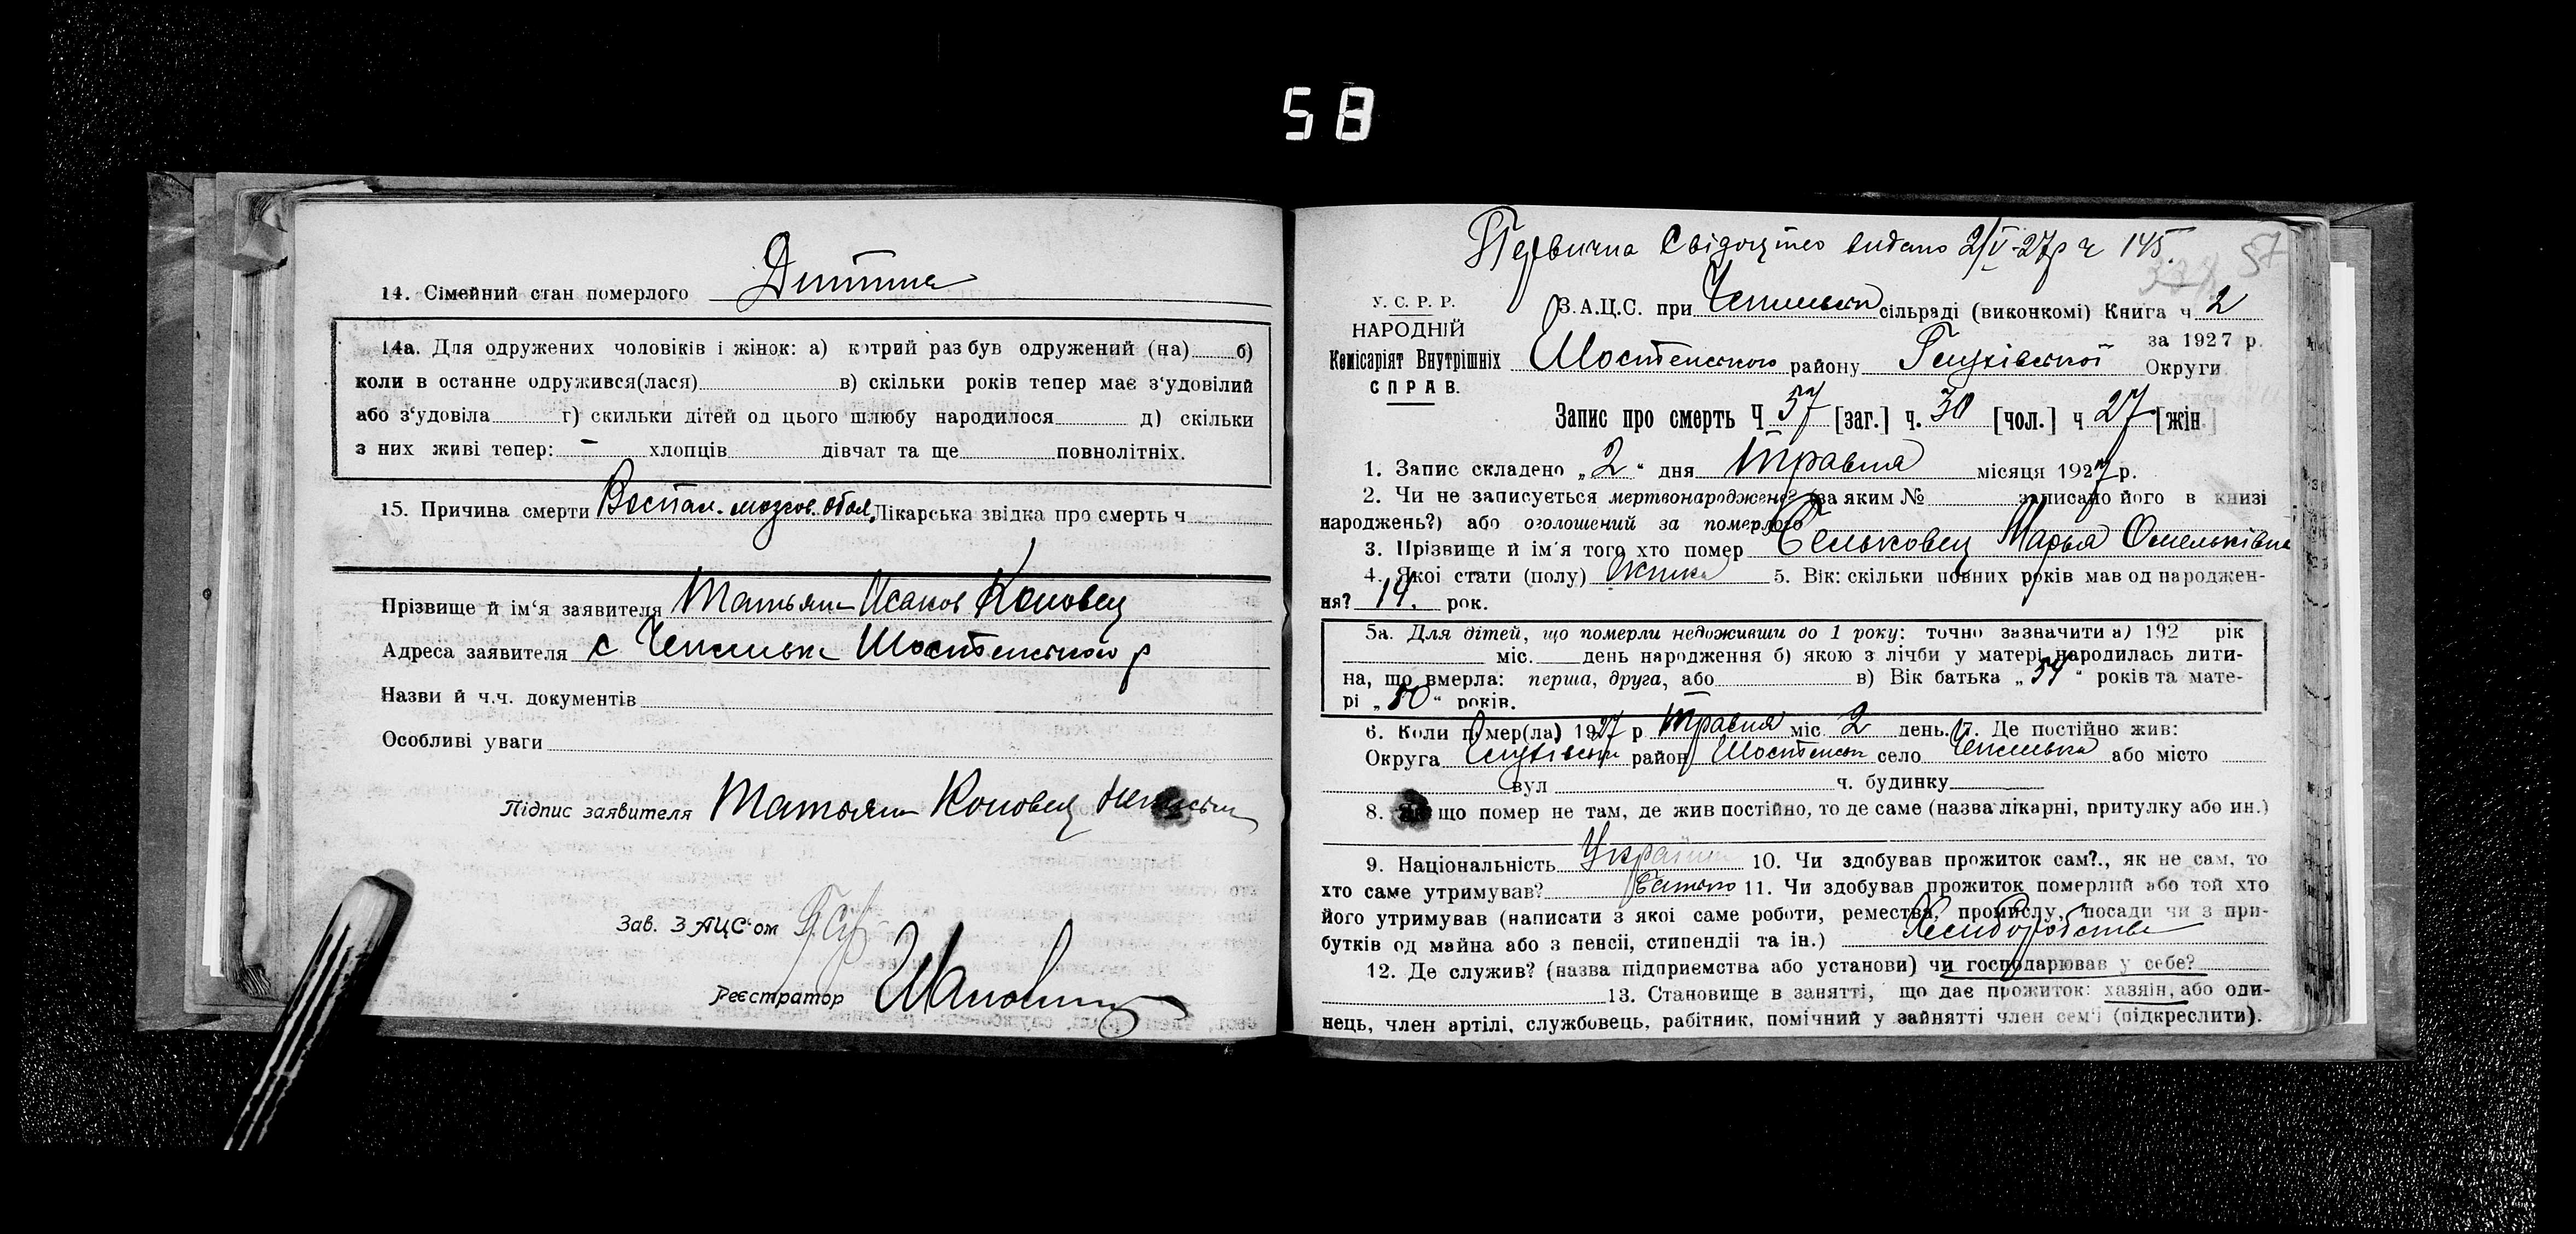 58
14. Сімейний стан померлого Дитина
14а. Для одружених чоловіків і жінок: а) котрий раз був одружений (на) б)
коли в останне одружився(лася) в) скільки років тепер має з'удовілий
або з'удовіла г) скильки дітей од цього шлюбу народилося д) скільки
з них живі тепер: – хлопців дівчат та ще повнолітніх.
15. Причина смерти Воспал. мозгов. обол. Лікарська звідка про смерть ч
Прізвище й ім'я заявителя Матьяна Исаков Коновец
Адреса заявителя с Шостенського р
Назви й ч.ч. документів
Особливі уваги
Підпис заявителя Матьяна Коновец
Зав. ЗАЦС'ом
Реєстратор
Первична Свідоцтво видано 2/V-27р ч 145.
57
У. С. Р. Р.
НАРОДНІЙ
Комісаріят Внутрішніх
СПРАВ.
З.А.Ц.С. при сільраді (виконкомі) Книга ч 2
за 1927 р.
Шостенського району Глухівської Округи
Запис про смерть Ч 57 [заг.] ч. 30 [чол.] ч 27 [жін.]
1. Запис складено „2" дня травня місяця 1927 р.
2. Чи не записується мертвонароджене? (за яким № записано його в книзі
народжень?) або оголошений за померлого
3. Прізвище й ім'я того хто помер Марья Омельківна
4. Якої стати (полу) 5. Вік: скільки повних років мав од народжен-
ня? 14. рок.
5а. Для дітей, що померли недоживши до 1 року: точно зазначити а) 192 рік
міс. день народження б) якою з лічби у матері народилась дити-
на, що вмерла: перша, друга, або в) Вік батька „54" років та мате-
рі „50" років.
6. Коли помер(ла) 1927 р травня міс 2 день. 7. Де постійно жив:
Округа район Шостенськ село або місто
вул ч. будинку
8. що помер не там, де жив постійно, то де саме (назва лікарні, притулку або ин.)
9. Національність 10. Чи здобував прожиток сам?., як не сам, то
хто саме утримував? Батько 11. Чи здобував прожиток померлий або той хто
його утримував (написати з якої саме роботи, ремества, промислу, посади чи з при-
бутків од майна або з пенсії, стипендії та ін.) Хлиборобства
12. Де служив? (назва підприемства або установи) чи господарював у себе?
13. Становище в занятті, що дає прожиток: хазяін, або оди-
нець, член артілі, службовець, рабітник, помічний у зайнятті член сем'ї (підкреслити).